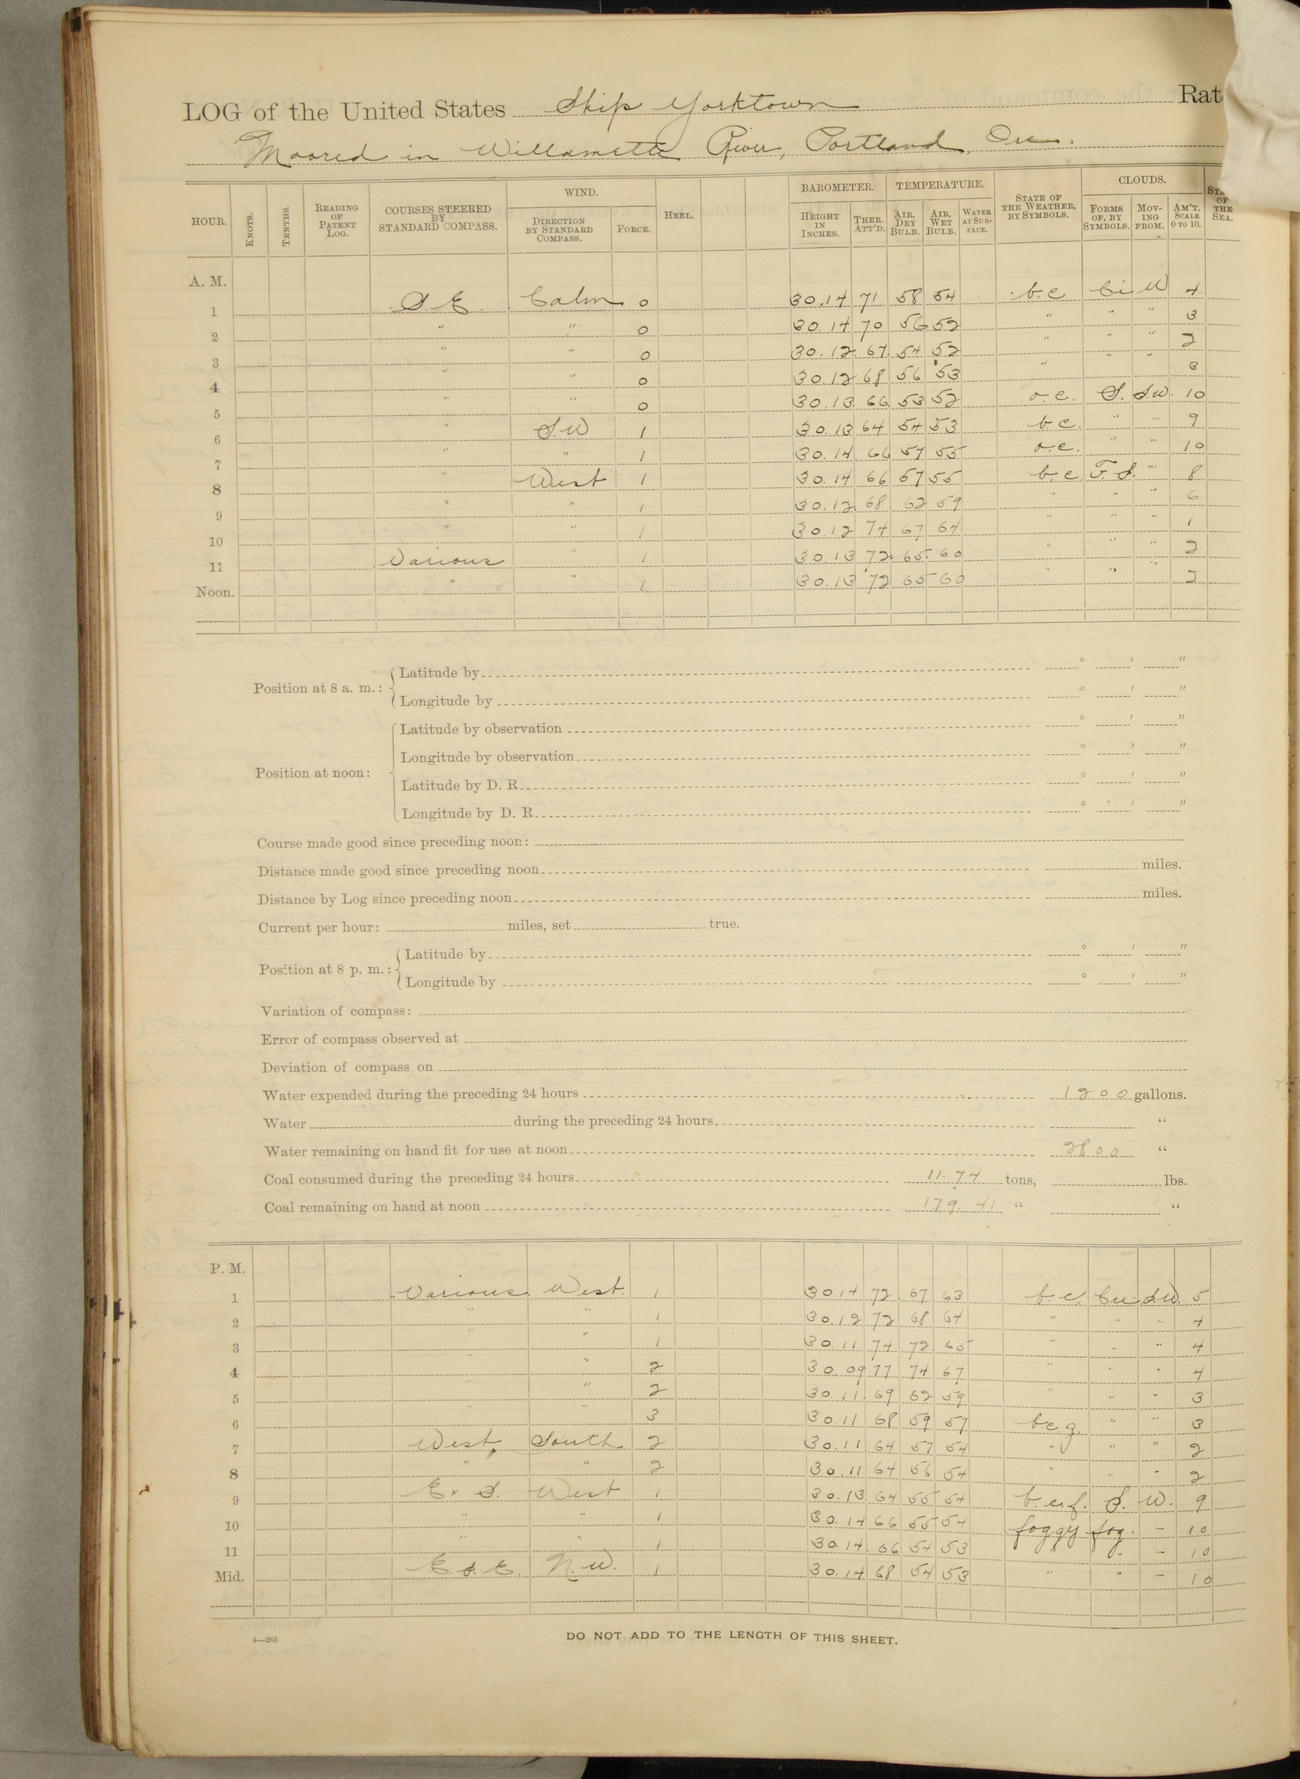 LOG of the United States Ship Yorktown Rat
Moored in Willamette River, Portland, Ore.
HOUR. KNOTS. TENTHS. READING OF PATENT LOG. COURSES STEERED BY STANDARD COMPASS. WIND. DIRECTION BY STANDARD COMPASS. FORCE. HEEL. BAROMETER. HEIGHT IN INCHES. THER. ATT'D. TEMPERATURE. AIR, DRY BULB. AIR, WET BULB. WATER AT SURFACE. STATE OF THE WEATHER, BY SYMBOLS. CLOUDS. FORMS OF, BY SYMBOLS. MOVING FROM. AM'T. SCALE 0 TO 10. OF THE SEA.
A. M.
1 S E. Calm 0 30.14 71 58 54 b.c Ci W 4
2 " " 0 30.14 70 56 52 " " " 3
3 " " 0 30.12 67 54 52 " " " 2
4 " " 0 30.12 68 56 53 " " " 3
5 " " 0 30.13 66 53 52 o.c. S. SW. 10
6 " SW 1 30.13 64 54 53 b c. " " 9
7 " " 1 30.14 66 57 55 o.c. " " 10
8 " West 1 30.14 66 57 55 b.c. F.S. " 8
9 " " 1 30.12 68 62 59 " " " 6
10 " " 1 30.12 74 67 64 " " " 1
11 Various " 1 30.13 72 65 60 " " " 2
Noon. " " 1 30.13 72 65 60 " " " 2
Position at 8 a. m.: Latitude by ° ' "
Longitude by ° ' "
Position at noon: Latitude by observation ° ' "
Longitude by observation ° ' "
Latitude by D. R. ° ' "
Longitude by D. R. ° ' "
Course made good since preceding noon:
Distance made good since preceding noon miles.
Distance by Log since preceding noon miles.
Current per hour: miles, set true.
Position at 8 p. m.: Latitude by ° ' "
Longitude by ° ' "
Variation of compass:
Error of compass observed at
Deviation of compass on
Water expended during the preceding 24 hours 1200 gallons.
Water during the preceding 24 hours "
Water remaining on hand fit for use at noon 2800 "
Coal consumed during the preceding 24 hours 11.74 tons, lbs.
Coal remaining on hand at noon 179.41 " "
P. M.
1 Various West. 1 30.14 72 67 63 b.c. Cu SW. 5
2 " " 1 30.12 72 68 64 " " " 4
3 " " 1 30.11 74 72 65 " " " 4
4 " " 2 30.09 77 74 67 " " " 4
5 " " 2 30.11 69 62 59 " " " 3
6 " " 3 30.11 68 59 57 b.c.g. " " 3
7 West South 2 30.11 64 57 54 " " " 2
8 " " 2 30.11 64 56 54 " " " 2
9 E x S. West 1 30.13 64 55 54 b.c.f. S. W. 9
10 " " 1 30.14 66 55 54 foggy fog. - 10
11 " " 1 30.14 66 54 53 " " - 10
Mid. E.S.E. N.W. 1 30.14 68 54 53 " " - 10
4—265
DO NOT ADD TO THE LENGTH OF THIS SHEET.